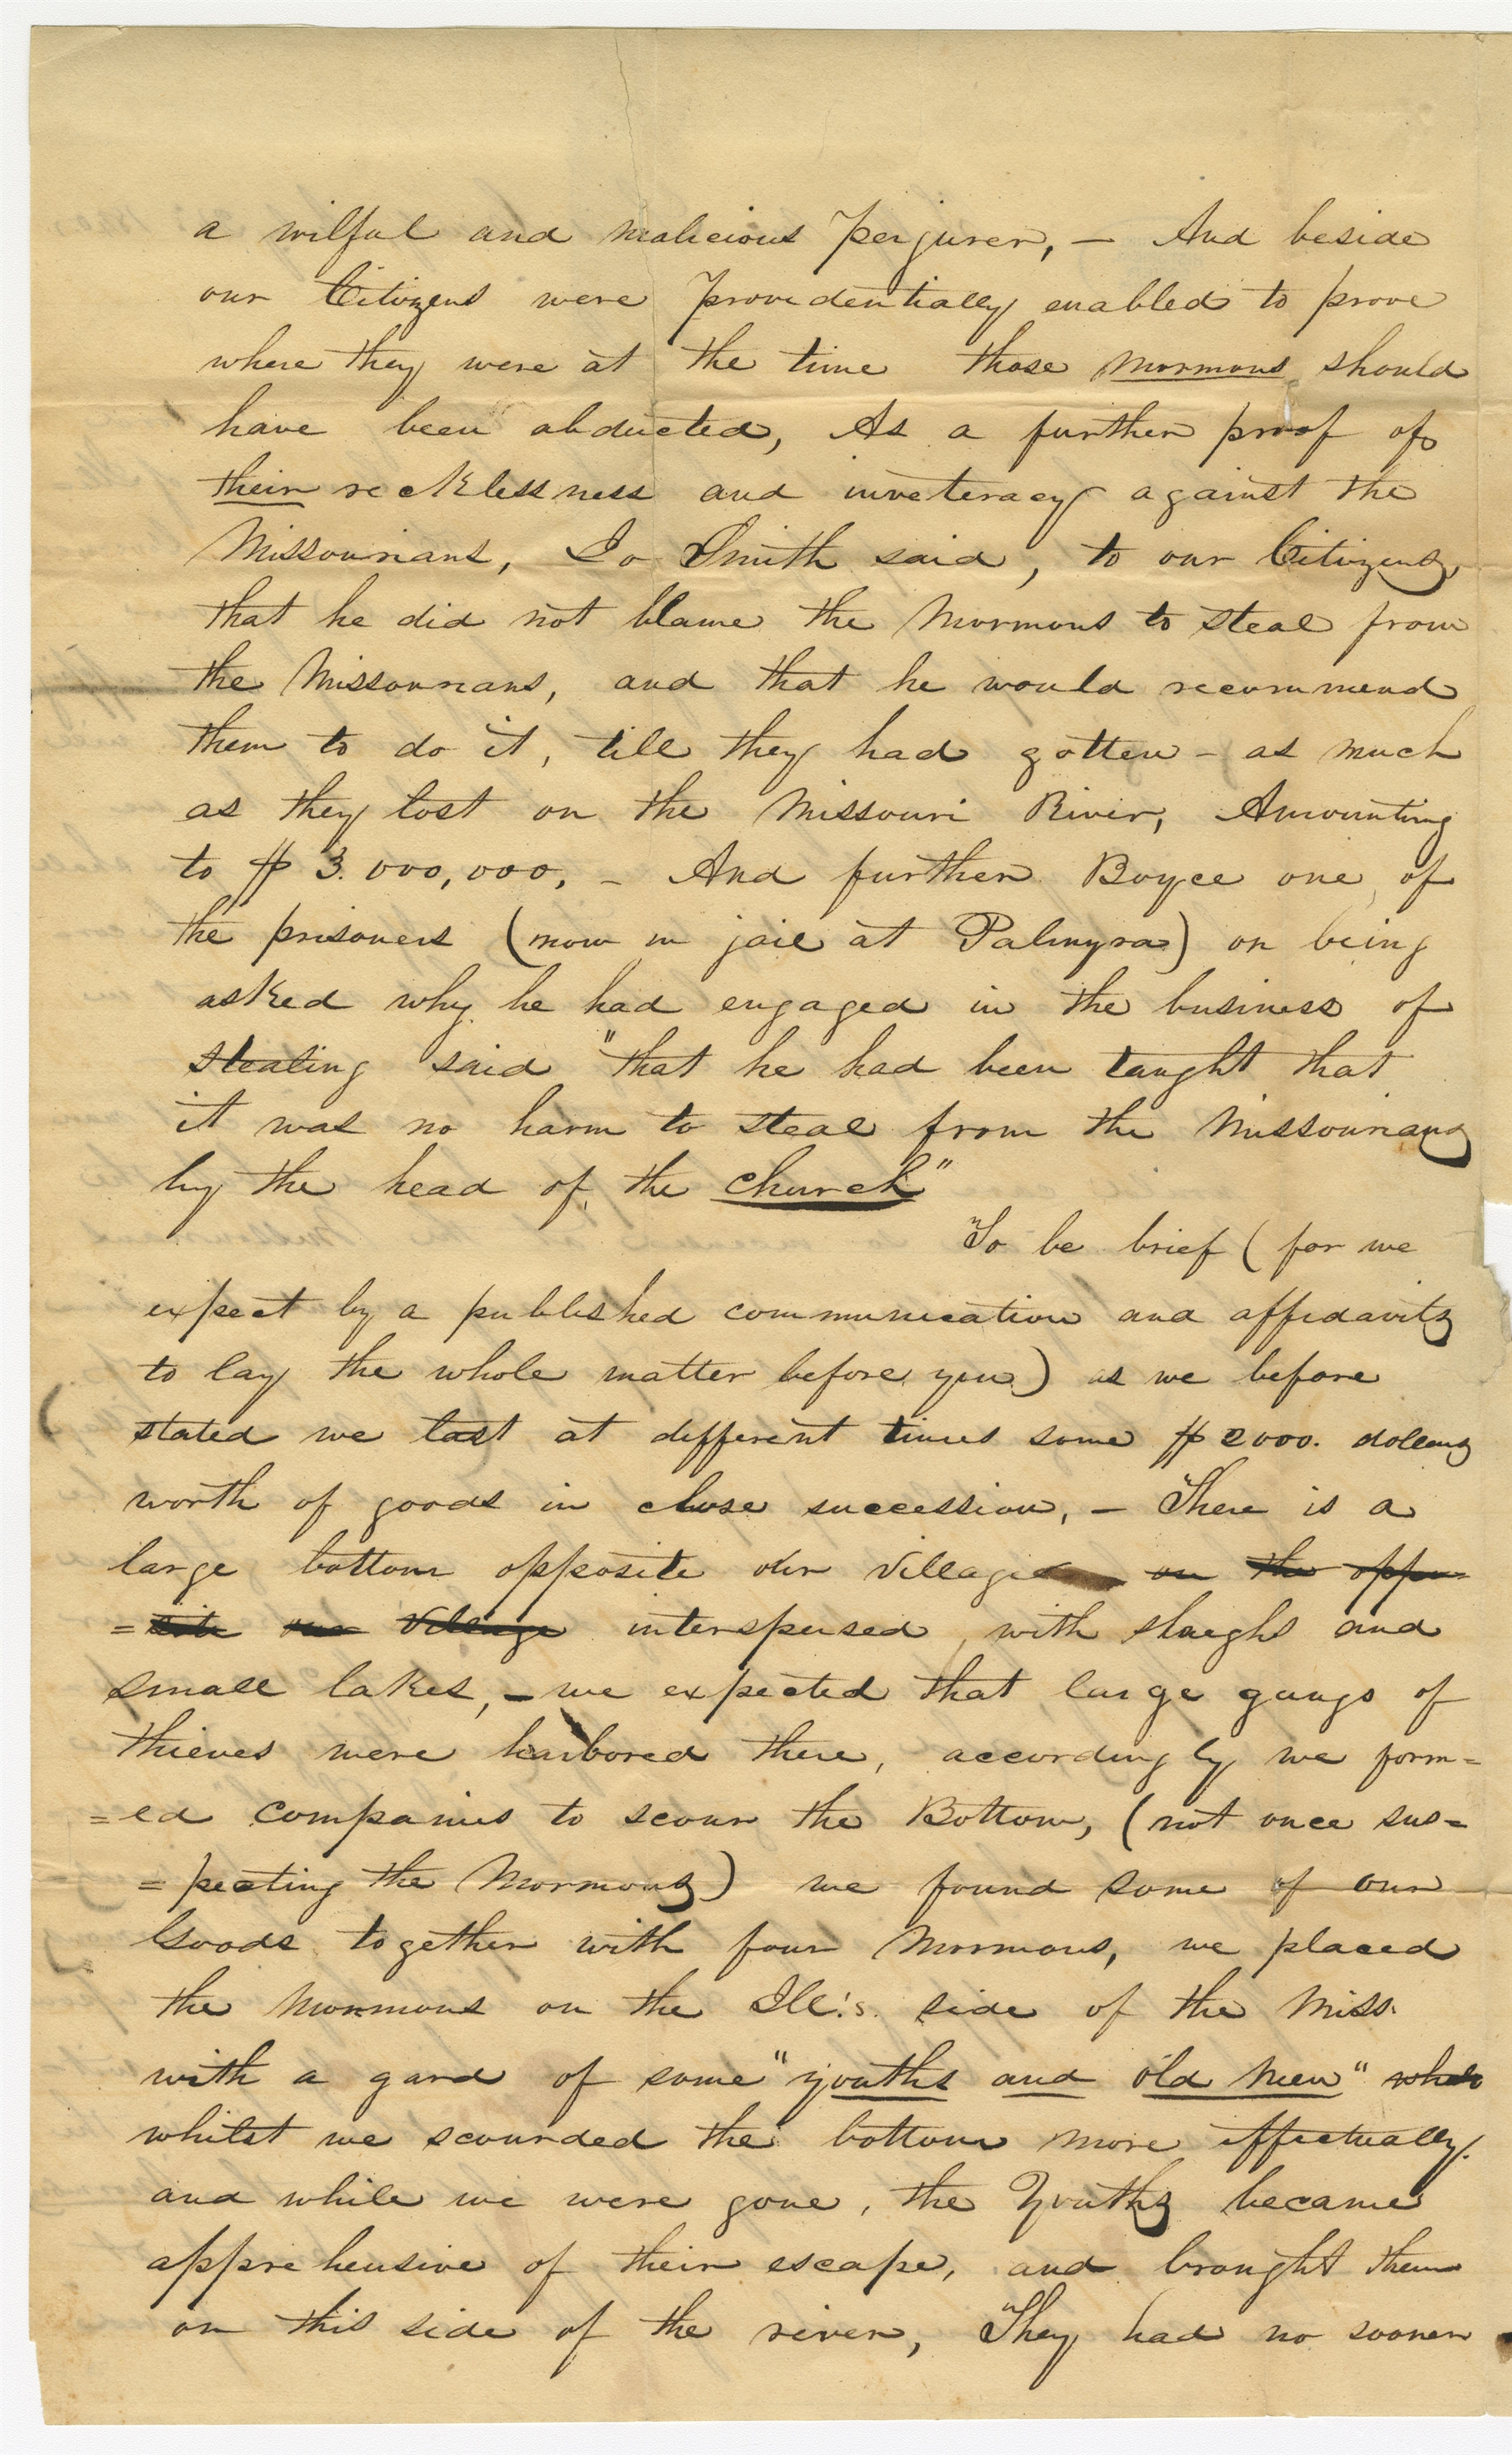 a wilful and malicious perjurer, – And beside
our Citizens were providentially enabled to prove
where they were at the time those mormons should
have been abducted, As a further proof of
their recklessness and inveteracy against the
Missourians, Jo Smith said, to our Citizens,
that he did not blame the Mormons to steal from
the Missourians, and that he would recommend
them to do it, till they had gotten – as much
as they lost on the Missouri River, Amounting
to $ 3.000,000, – And further Boyce one of
the prisoners (now in jail at Palmyra) on being
asked why he had engaged in the business of
stealing said "that he had been taught that
it was no harm to steal from the Missourians
by the head of the church"
To be brief (for we
expect by a published communication and affidavits
to lay the whole matter before you) as we before
stated we lost at different times some $2000. dollars
worth of goods in close succession, – There is a
large bottom opposite our village on the oppo-
=site our Village interspersed, with slaughs and
small lakes, – we expected that large gangs of
thieves were harbored there, accordingly we form=
=ed companies to scour the Bottom, (not once sus=
=pecting the Mormons) we found some of our
Goods together with four Mormons, we placed
the Mormons on the Ill's. side of the Miss.
with a gard of some "youths and old men"
whilst we scounded the bottom more effectually.
and while we were gone, the Youths became
apprehensive of their escape, and brought them
on this side of the river, They had no sooner